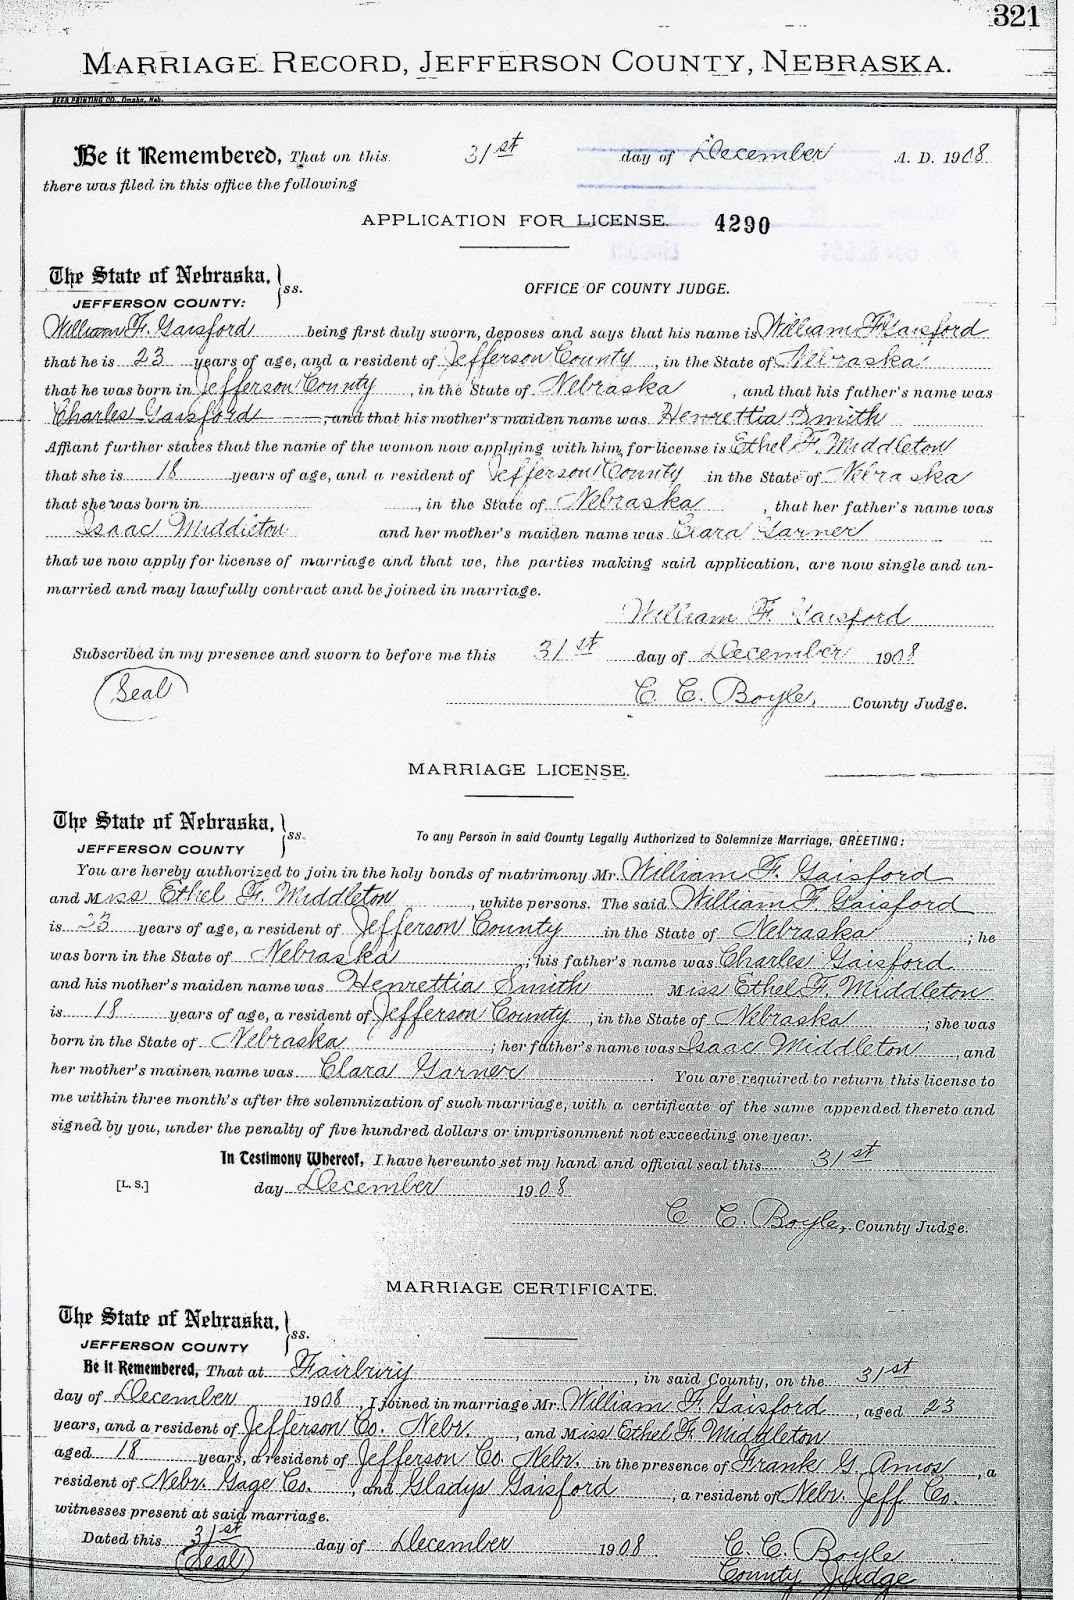 321
MARRIAGE RECORD, JEFFERSON COUNTY, NEBRASKA.
BEES PRINTING CO., Omaha, Neb.
Be it Remembered, That on this 31st day of December A. D. 1908
there was filed in this office the following
APPLICATION FOR LICENSE. 4290
The State of Nebraska, } ss.
JEFFERSON COUNTY:
OFFICE OF COUNTY JUDGE.
William F. Gaisford being first duly sworn, deposes and says that his name is William F Gaisford
that he is 23 years of age, and a resident of Jefferson County, in the State of Nebraska
that he was born in Jefferson County, in the State of Nebraska, and that his father's name was
Charles Gaisford, and that his mother's maiden name was Henrettia Smith
Affiant further states that the name of the woman now applying with him for license is Ethel F. Middleton
that she is 18 years of age, and a resident of Jefferson County in the State of Nebraska
that she was born in , in the State of Nebraska, that her father's name was
Isaac Middleton and her mother's maiden name was Clara Garner
that we now apply for license of marriage and that we, the parties making said application, are now single and un-
married and may lawfully contract and be joined in marriage.
William F. Gaisford
Subscribed in my presence and sworn to before me this 31st day of December 1908
(Seal) C. C. Boyle, County Judge.
MARRIAGE LICENSE.
The State of Nebraska, } ss.
JEFFERSON COUNTY
To any Person in said County Legally Authorized to Solemnize Marriage, GREETING:
You are hereby authorized to join in the holy bonds of matrimony Mr. William F. Gaisford
and Miss Ethel F. Middleton, white persons. The said William F. Gaisford
is 23 years of age, a resident of Jefferson County in the State of Nebraska; he
was born in the State of Nebraska; his father's name was Charles Gaisford
and his mother's maiden name was Henrettia Smith Miss Ethel F. Middleton
is 18 years of age, a resident of Jefferson County, in the State of Nebraska; she was
born in the State of Nebraska; her father's name was Isaac Middleton, and
her mother's mainen name was Clara Garner. You are required to return this license to
me within three month's after the solemnization of such marriage, with a certificate of the same appended thereto and
signed by you, under the penalty of five hundred dollars or imprisonment not exceeding one year.
In Testimony Whereof, I have hereunto set my hand and official seal this 31st
[L. S.] day December 1908
C. C. Boyle, County Judge.
MARRIAGE CERTIFICATE.
The State of Nebraska, } ss.
JEFFERSON COUNTY
Be it Remembered, That at Fairbury, in said County, on the 31st
day of December 1908, I joined in marriage Mr. William F. Gaisford, aged 23
years, and a resident of Jefferson Co. Nebr., and Miss Ethel F. Middleton
aged 18 years, a resident of Jefferson Co. Nebr. in the presence of Frank G Amos, a
resident of Nebr. Gage Co., and Gladys Gaisford, a resident of Nebr. Jeff Co.
witnesses present at said marriage.
Dated this 31st day of December 1908 C. C. Boyle
(Seal) County Judge